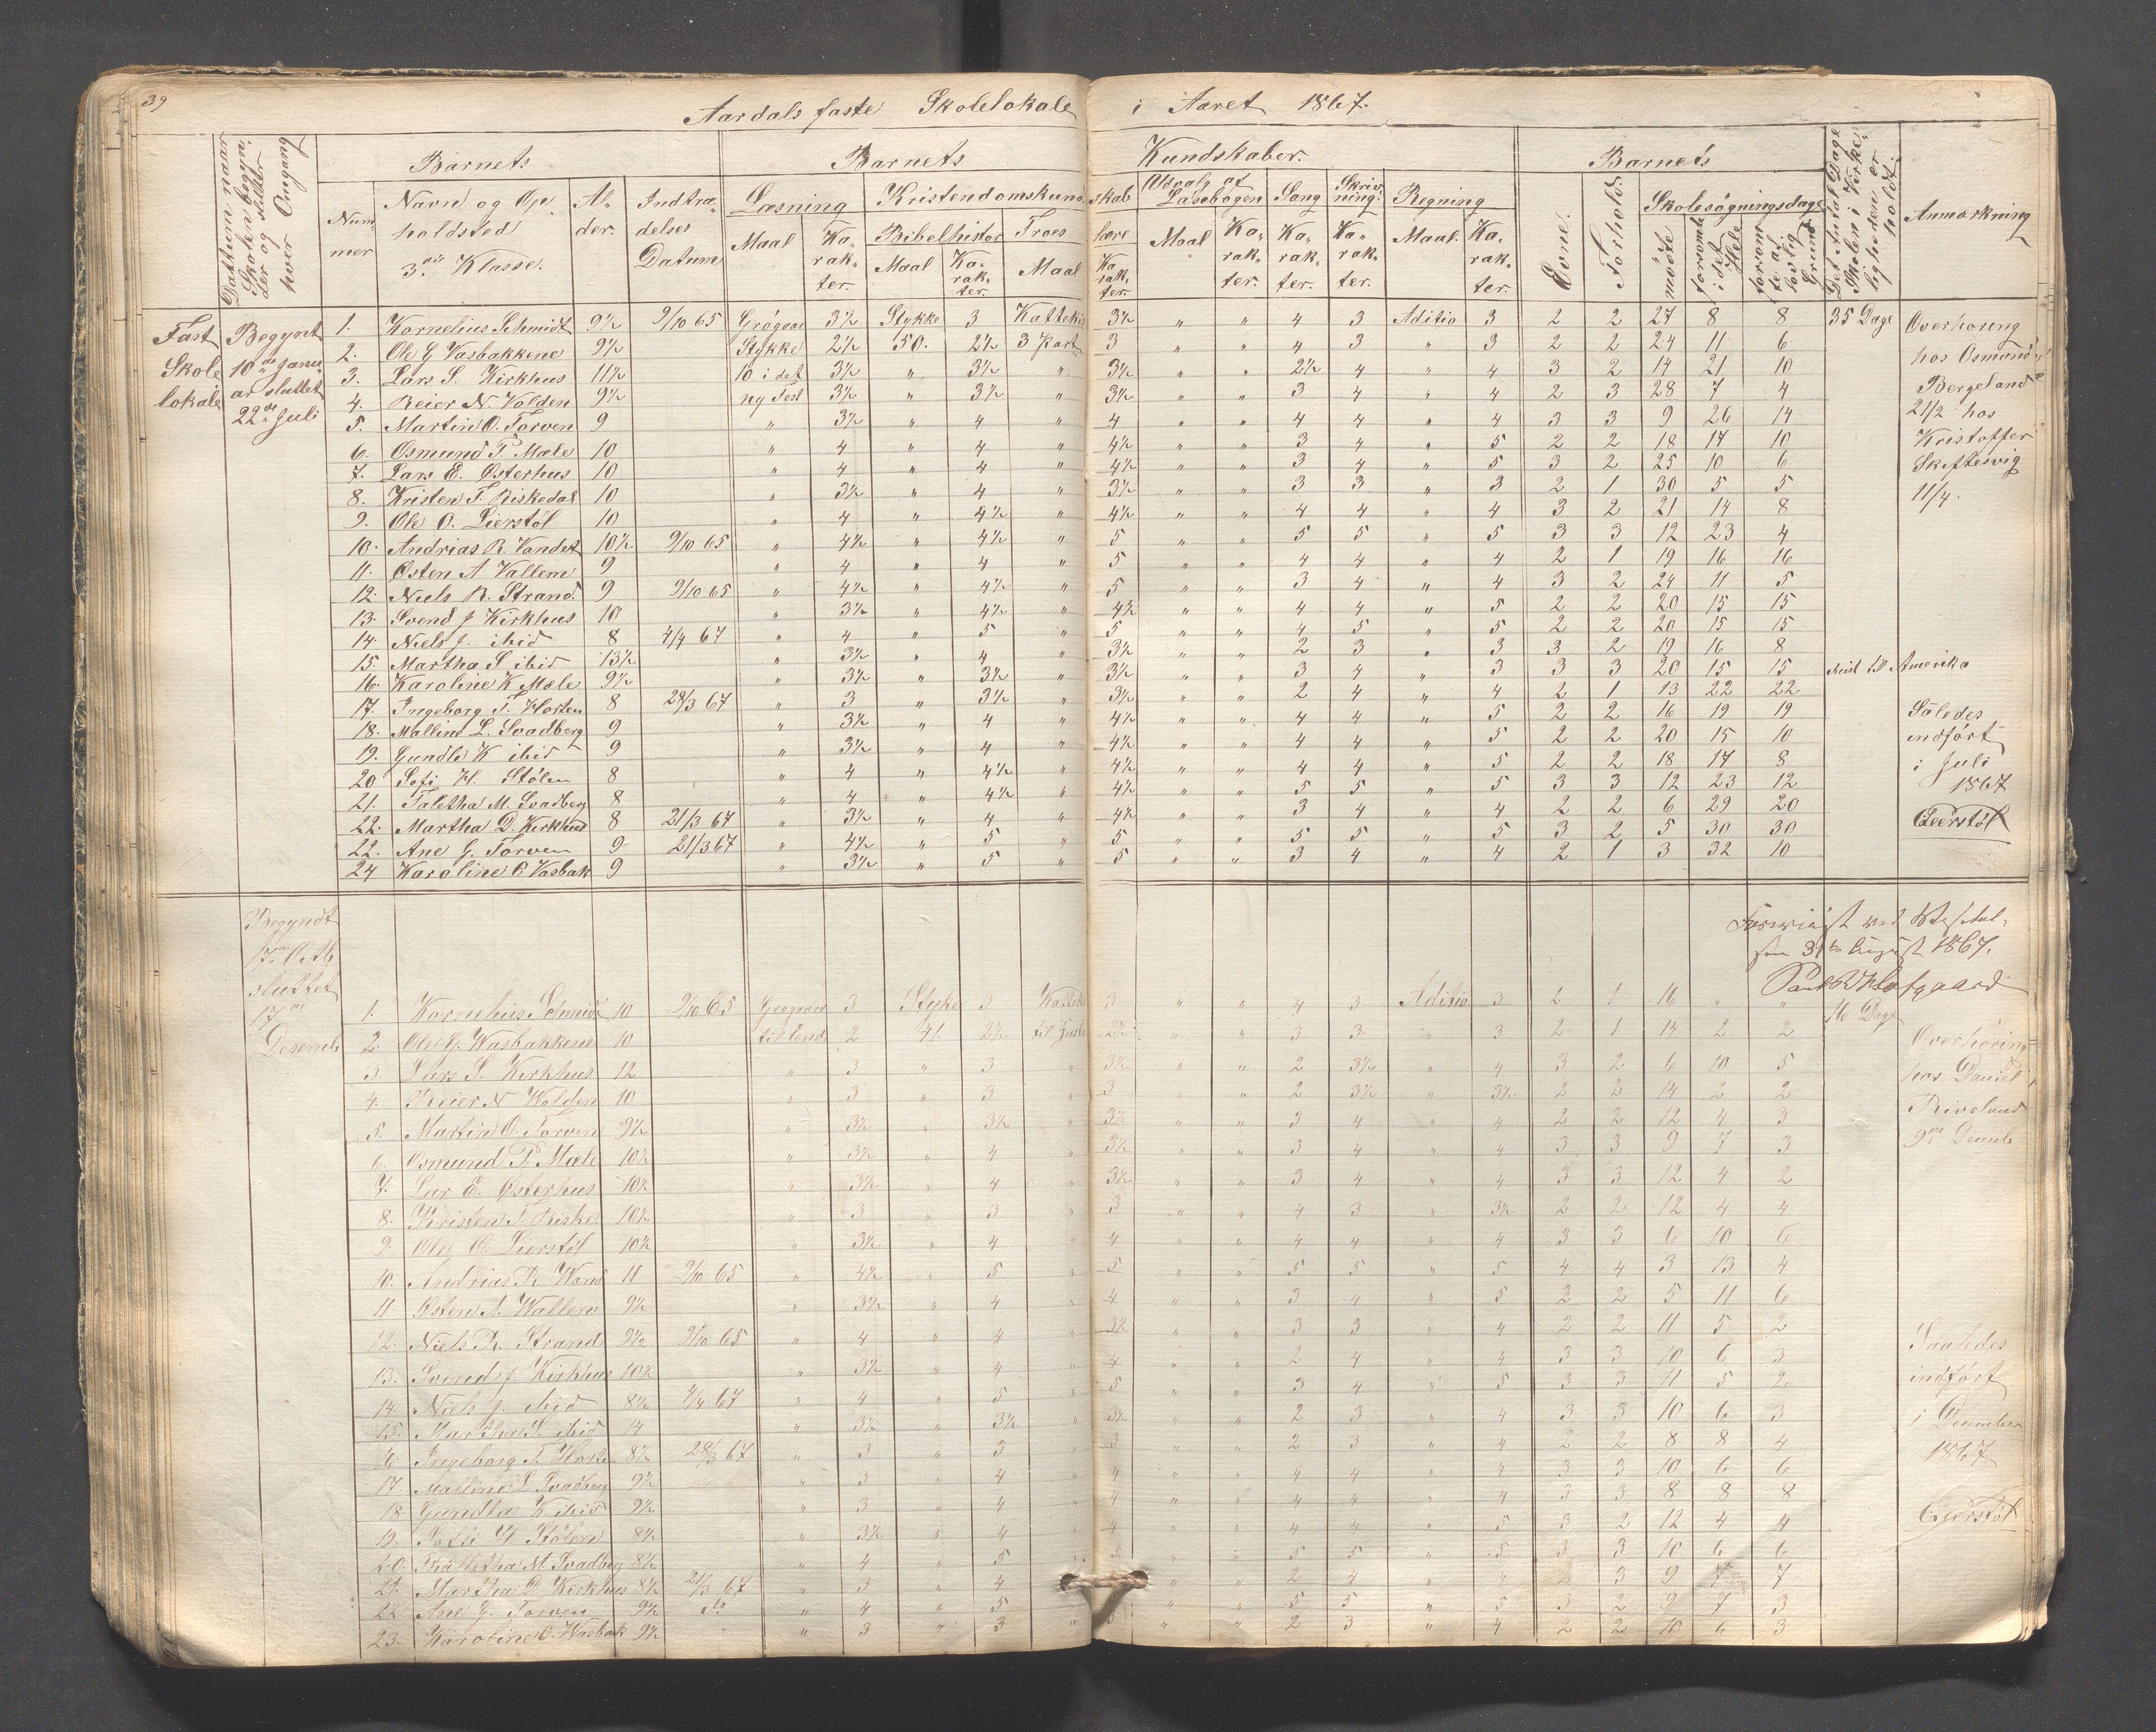 39
Aardals faste Skolelokale i Aaret 1867.
Dattum naar Skolen begynder og slutter hver Omgang
Barnets
Barnets
Kundskaber.
Barnets
Det Antal Dage Skolen i Virkeligheden er holdt.
Anmærkning
Nummer
Navn og Opholdsted 3die Klasse.
Alder.
Indtrædelses Datum
Læsning
Kristendomskundskab
Udvalg af Læsebogen
Sang
Skrivning.
Regning
Evne.
Forhold.
Skolesøgningsdage
Maal
Karakter.
Bibelhistor
Troeslære
Maal
Karakter.
Maal
Karakter.
Maal
Karakter.
Karakter.
Karakter.
Maal.
Karakter.
mødte
forsømte i det Hele
forsømte af lovlig Grund
Fast Skole lokale
Begynt 10de Januar sluttet 22de Juli
1. Kornelius Schmidt 9½ 9/10 65 Grøgaar 3½ Stykke 3 Kattekis 3½ " " 4 3 Aditio 3 2 2 27 8 8 35 Dage
2. Ole G Vasbakkene 9½ Stykke 2½ 50. 2½ 3 Part 3 " " 4 3 " 3 2 2 24 11 6
3. Lars S. Kirkhus 11½ 10 i det 3½ " 3½ " 3½ " " 2½ 4 " 4 3 2 14 21 10
4. Reier N. Volden 9½ ny Test 3½ " 3½ " 3½ " " 3 4 " 4 2 3 28 7 4
5. Martin O. Torven 9 " 3½ " 4 " 4 " " 4 4 " 4 3 3 9 26 14
6. Osmund T. Mæle 10 " 4 " 4 " 4½ " " 3 4 " 5 2 2 18 17 10
7. Lars E. Østerhus 10 " 4 " 4 " 4½ " " 3 4 " 5 3 2 25 10 6
8. Kristen T. Riskedal 10 " 3½ " 4 " 3½ " " 3 3 " 3 2 1 30 5 5
9. Ole O. Lierstøl 10 " 4 " 4½ " 4½ " " 4 4 " 4 3 2 21 14 8
10. Andrias R. Vandet 10½ 9/10 65 " 4½ " 4½ " 5 " " 5 5 " 5 3 3 12 23 4
11. Østen A Vallem 9 " 4 " 4 " 5 " " 4 4 " 4 2 1 19 16 16
12 Niels R. Strand. 9 9/10 65 " 4½ " 4½ " 5 " " 3 4 " 4 3 2 24 11 5
13. Svend J Kirkhus 10 " 3½ " 4½ " 4½ " " 4 4 " 5 2 2 20 15 15
14. Niels J. ibid 8 4/4 67 " 4 " 5 " 5 " " 4 5 " 5 2 2 20 15 15
15. Martha S ibid 13½ " 3½ " 4 " 3½ " " 2 3 " 3 3 2 19 16 8
16. Karoline K Mæle 9½ " 3½ " 3½ " 3½ " " 3 4 " 3 3 3 20 15 15 reist til Amerika
17. Ingeborg T. Horten 8 28/3 67 " 3 " 3½ " 3½ " " 2 4 " 4 2 1 13 22 22
18. Malline L. Svadberg 9 " 3½ " 4 " 4½ " " 4 4 " 5 2 2 16 19 19
19. Gundle K ibid 9 " 3½ " 4 " 4½ " " 4 4 " 5 2 2 20 15 10
20 Sofi H. Stølen 8 " 4 " 4½ " 4½ " " 4 4 " 5 2 2 18 17 8
21. Taletha M. Svadberg 8 " 4 " 4½ " 4½ " " 5 5 " 5 3 3 12 23 12
22. Martha D. Kirkhus 8 21/3 67 " 3½ " 4 " 4½ " " 3 4 " 4 2 2 6 29 20
22. Ane G. Torven 9 21/3 67 " 4½ " 5 " 5 " " 5 5 " 5 3 2 5 30 30
24 Karoline O Vasbak 9 " 3½ " 5 " 5 " " 3 4 " 4 2 1 3 32 10
Overhøring
hos Osmund
Bergeland
21/2 hos
Kristoffer
Skiftesvig
11/4.
Således
indført
i Juli
1867
Geerstøl
31te August 1867.
Begyndt
17de Octb
sluttet
17de
Desemb
1. Kornelius Schmidt 10 9/10 65 Grøgaard 3 Stykke 3 Katteki 3 " " 4 3 Aditio 3 2 1 16 " " 16 Dage
2. Ole G. Wasbakkene 10 til Ende 2 41. 2½ 2½ " " 3 3 " 3 2 1 14 2 2
3. Lars S. Kirkhus 12 " 3 " 3 " 3½ " " 2 3½ " 4 3 2 6 10 5
4. Reier N Wolden 10 " 3 " 3 " 3 " " 2 3½ " 3½ 2 2 14 2 2
5. Martin O. Torven 9½ " 3½ " 3½ " 3½ " " 3 4 " 4 2 2 12 4 3
6. Osmund T. Mæle 10½ " 3½ " 4 " 3½ " " 3 4 " 4 3 3 9 7 3
7. Lar E. Østerhus 10½ " 3½ " 4 " 3½ " " 3 4 " 4 3 3 12 4 2
8. Kristen T. Riske 10½ " 3 " 3 " 3 " " 4 3 " 3½ 2 2 12 4 4
9. Ole O. Lierstøl 10½ " 3½ " 4 " 4 " " 4 4 " 4 3 3 6 10 6
10. Andrias R Wand 11 9/10 65 " 4½ " 5 " 5 " " 5 5 " 5 4 4 3 13 4
11. Østen A. Wallem 9½ " 3½ " 4 " 4 " " 3 4 " 5 2 2 5 11 6
12. Niels R. Strand 9½ 9/10 65 " 4 " 4 " 3½ " " 3 3 " 4 2 2 11 5 2
13. Svend J Kirkhus 10½ " 3½ " 4 " 4 " " 2 4 " 4 3 3 10 6 3
14. Niels J. ibid 8½ 4/4 67 " 4 " 5 " 5 " " 3 4 " 5 3 3 11 5 2
15. Martha S. ibid 14 " 3½ " 3½ " 3½ " " 2 3 " 4 3 3 10 6 3
16. Ingeborg T. Horte 8½ 28/3 67 " 3 " 3 " 3 " " 2 3 " 4 2 2 8 8 4
17. Malline L Svadberg 9½ " 3 " 4 " 4 " " 4 4 " 4 3 3 10 6 6
18 Gundla K ibid 9½ " 3 " 4 " 4 " " 4 4 " 4 3 3 8 8 8
19. Sofii H Stølen 8½ " 3½ " 4 " 4 " " 4 4 " 5 3 2 12 4 4
20. Thaletha M. Svadberg 8½ " 4 " 5 " " " 5 5 " 5 3 3 10 6 6
21. Martha D. Kirkhus 8½ 21/3 67 " 3 " 4 " " 2 4 " 4 2 3 9 7 7
22 Ane G. Torven 9½ " 4 " 5 " " 5 5 " 5 3 2 9 7 3
23. Karoline O. Wasbak 9½ " 3 " 3 " " " 2 3 " 4 2 2 10 6 3
Overhøring
hos Daniel
Riveland
9de Decemb
Saaledes
indført
i December
1867
Geerstøl